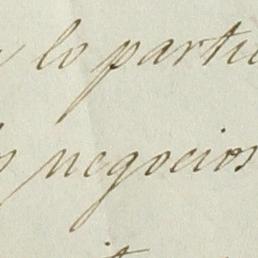 lo partic
negocios